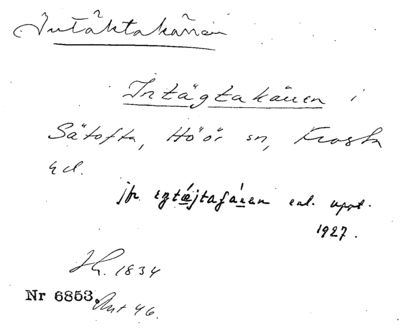 Intäktakären
Intägtakären i
Sätofta, Höör sn, Frosta
hd.
jfr egtæjtagáren enl. uppt.
1927.
Jh. 1834
Nr 6853. Ant 46.